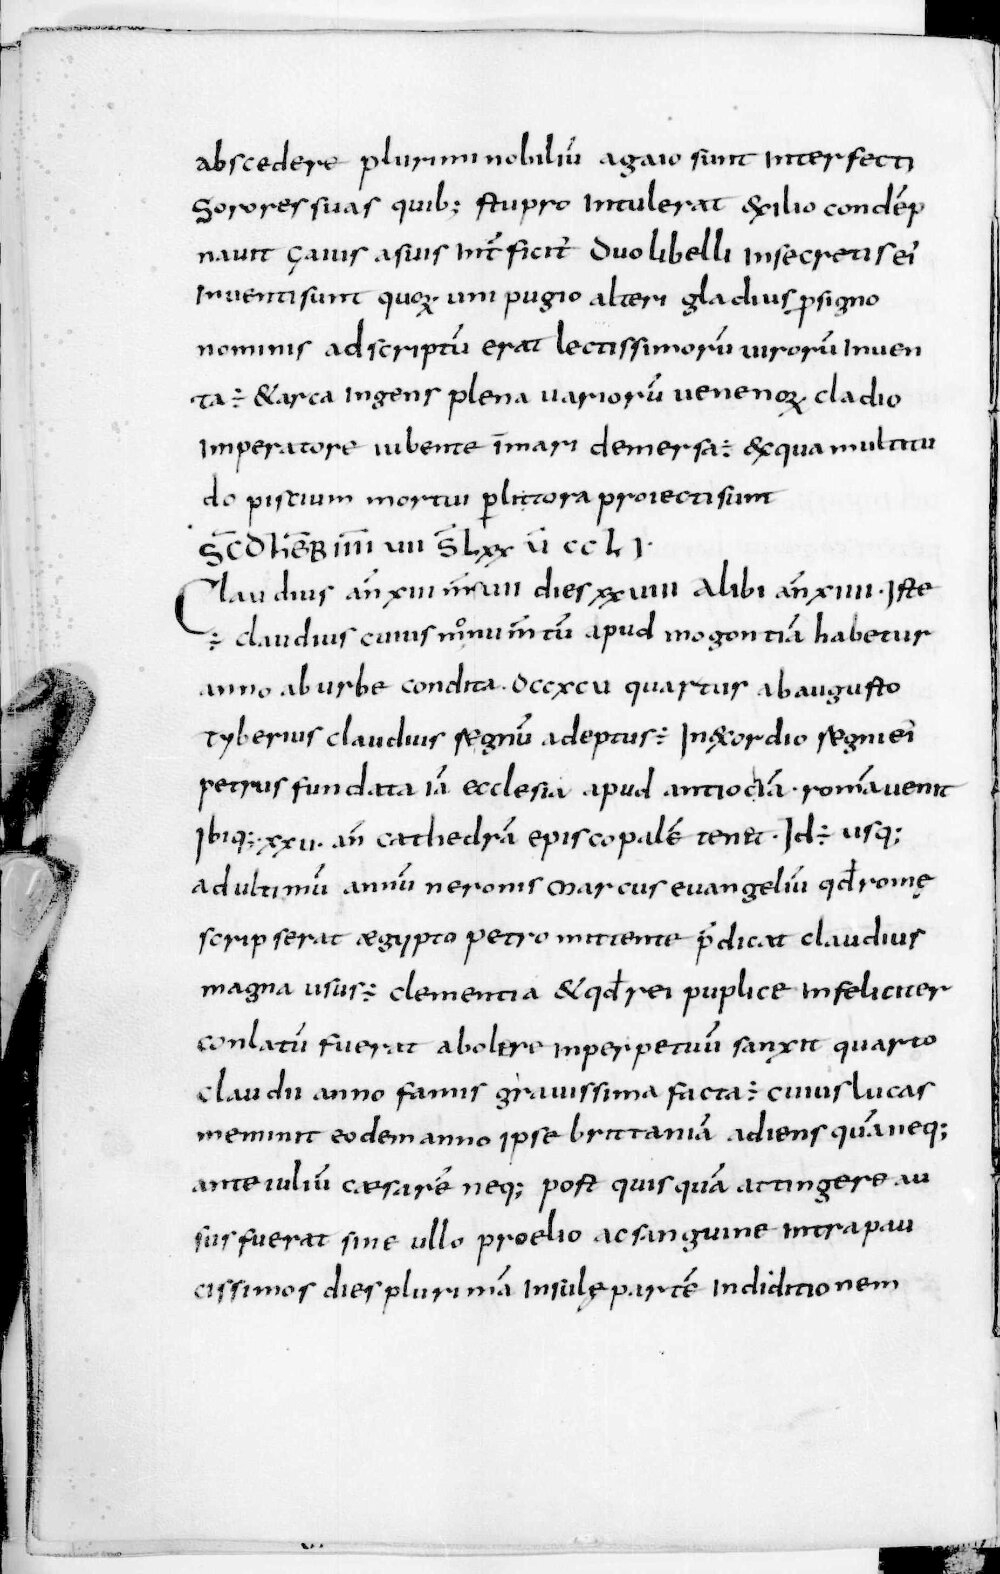 abscedere plurimi nobiliū a gaio sunt interfecti
Sorores suas quib; stupro intulerat exilio condēp
nauit Gaius a suis int̄ficit̄ Duo libelli in secretis ei᷒
inuenti sunt quoꝝ uni pugio alteri gladius ꝓ signo
nominis adscriptū erat lectissimorū uirorū inuen
ta ÷ & arca ingens plena uariorū uenenoꝝ cladio
imperatore iubente ī mari demersa ÷ ex qua multitu
do piscium mortui ꝑ littora proiecti sunt
S̄C̄D H̄EB̄ IIII VIII S̄ LXX V̄ CCLI·
Claudius an̄ xiii m̄ uiii dies xxuiii Alibi an̄ xiiii · Iste
÷ claudius cuius monum̄tū apud mogontiā habetur
anno ab urbe condita · DCCXCU quartus ab augusto
tyberius claudius regnū adeptus ÷ In exordio regni ei᷒
petrus fundata iā ecclesia apud antiociā · romā uenit
Ibiq; · xxu · an̄ cathedrā episcopalē tenet · Id ÷ usq;
ad ultimū annū neronis Marcus euangeliū qđ romę
scripserat ægypto petro mittente p̄dicat claudius
magna usus ÷ clementia & qđ rei puplice infeliciter
conlatū fuerat abolere in perpetuū sanxit quarto
claudii anno famis grauissima facta ÷ cuius lucas
meminit eodem anno ipse brittaniā adiens quā neq;
ante iuliū cæsarē neq; post quisquā attingere au
sus fuerat sine ullo proelio ac sanguine intra pau
cissimos dies plurimā insulę partē in diditionem